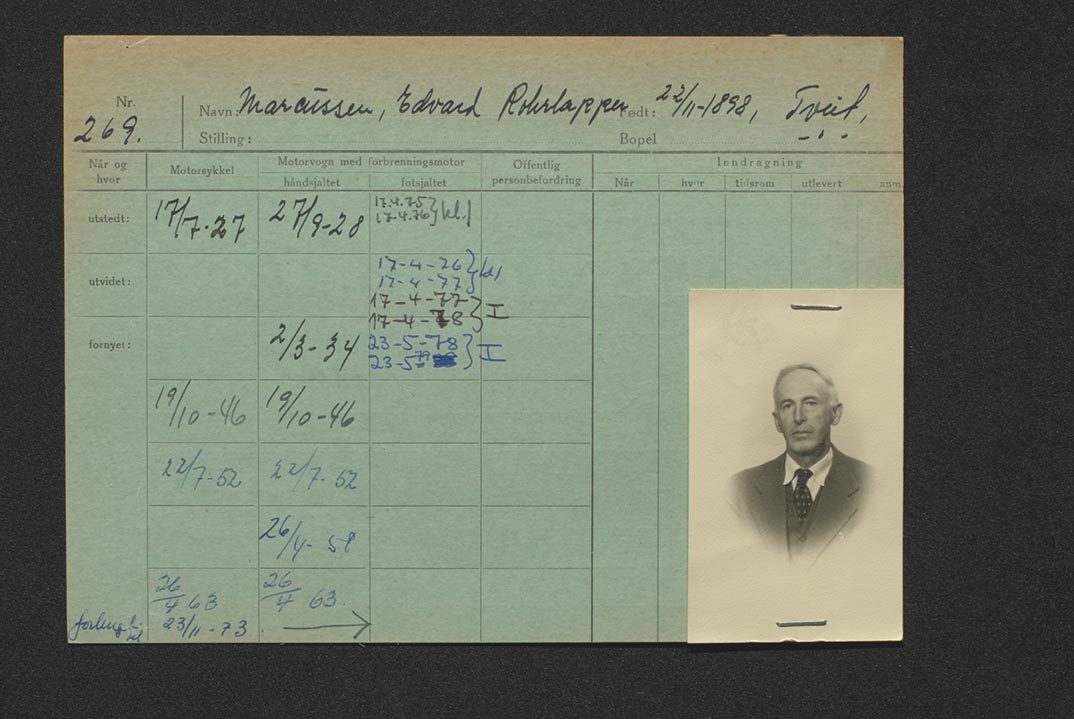 Nr. Navn: Marcussen, Edvard Rohrlapper Født: 22/11-1898, Tveit,
269. Stilling: Bopel
Når og hvor Motorsykkel Motorvogn med forbrenningsmotor Offentlig personbefordring Inndragning
håndsjaltet fotsjaltet Når hvor tidsrom utlevert anm.
utstedt: 17/7-27 27/9-28 17.4.75 } kl. I
17.4.76
utvidet: 17-4-76 } kl I
17-4-77
17-4-77 } I
17-4-78
fornyet: 2/3-34 23-5-78 } I
23-5-79
19/10-46 19/10-46
22/7-52 22/7-52
26/4-58
26/4 63 26/4 63.
23/11-73